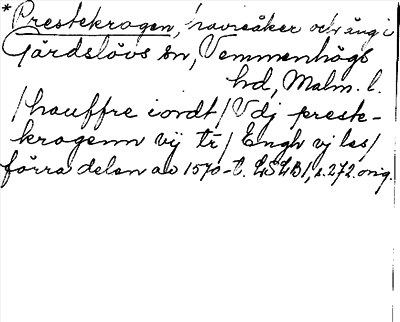 *Prestekrogen, havreåker och äng i
Gärdslövs sn, Vemmenhögs
hd, Malm. l.
/hauffre iordt/ Vdj preste-
krogenn vij tr/ Engh vj las/
förra delen av 1570-t. LSLB 1, s. 272. orig.